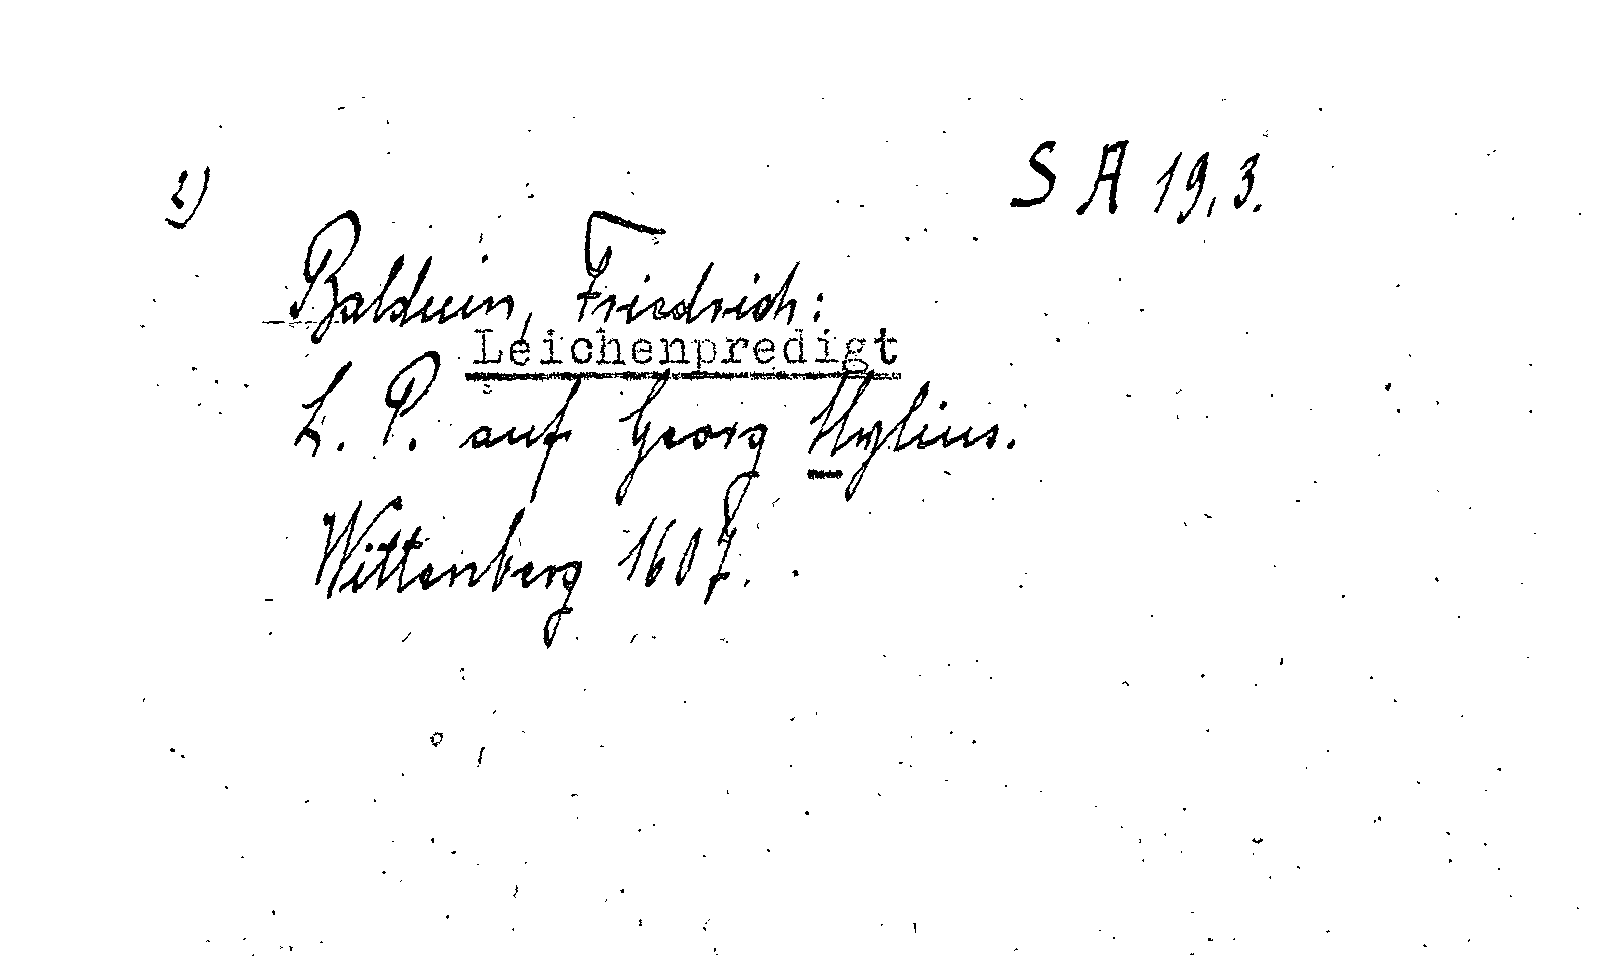 2) S A 19,3.
Balduin, Friedrich:
Leichenpredigt
L. P. auf Georg Mylius.
Wittenberg 1607.